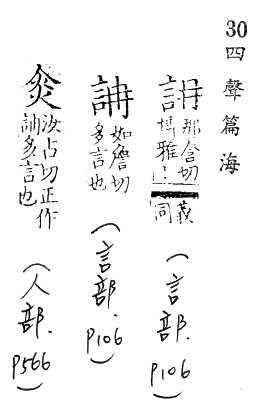 30四聲篇海
那含切
博雅
義同
(言部. P106)
䛁
如詹切
多言也
(言部. P106)
汝占切正作
䛁多言也
(人部. P566)